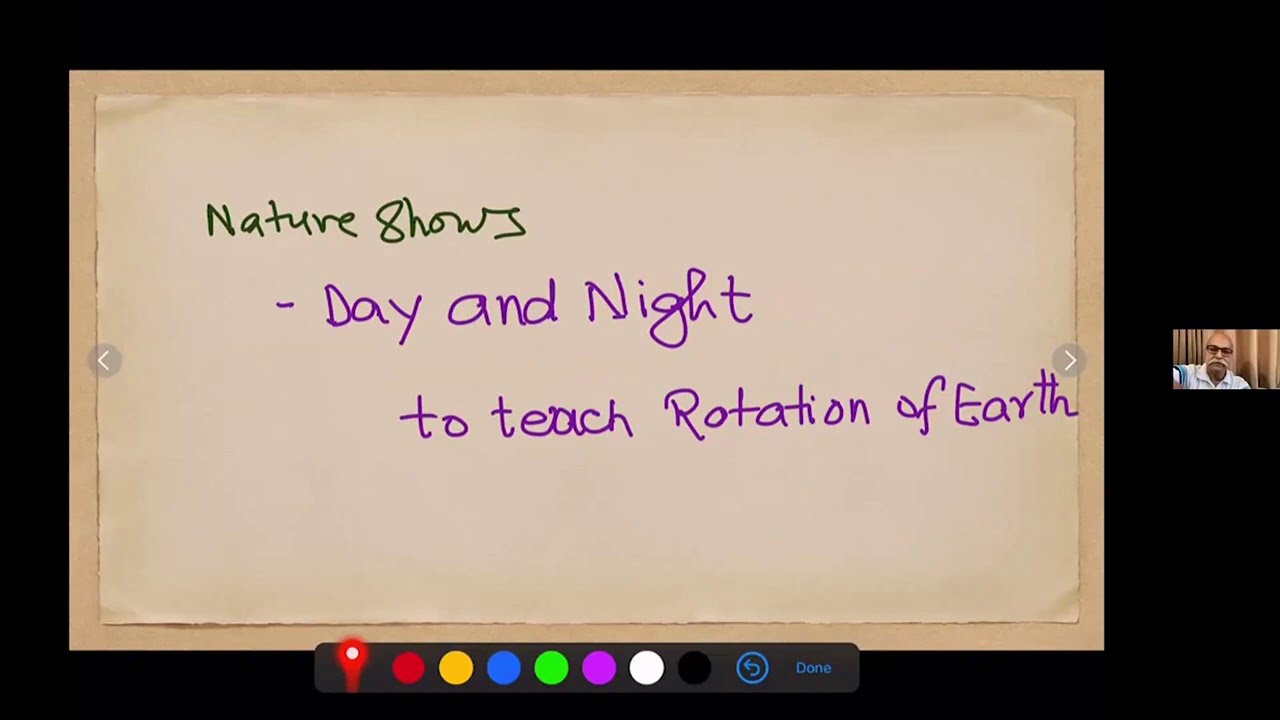 Nature Shows
- Day and Night
to teach Rotation of Earth
Done